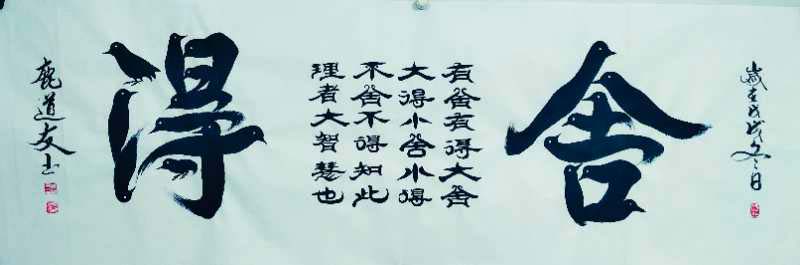 歲在戊戌冬日
舍
有舍有得大舍
大得小舍小得
不舍不得知此
理者大智慧也
得
鹿道友书